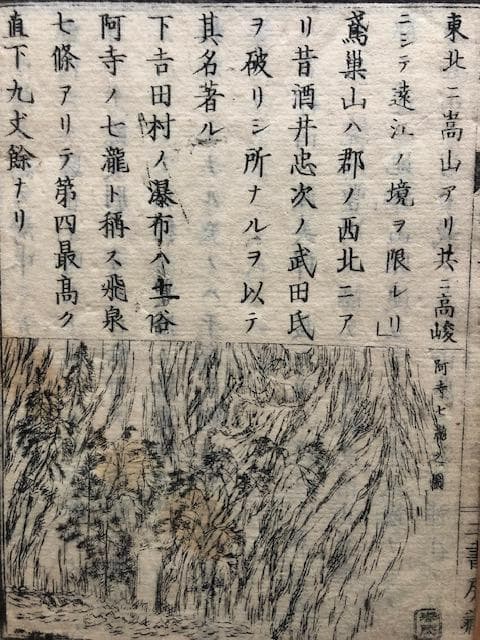 東北ニ嵩山アリ共ニ高峻
ニシテ遠江ノ境ヲ限レリ」
鳶巣山ハ郡ノ西北ニア
リ昔酒井忠次ノ武田氏
ヲ破リシ所ナルヲ以テ
其名著ル
下吉田村ノ瀑布ハ土俗
阿寺ノ七瀧ト稱ス飛泉
七條アリテ第四最高ク
直下九丈餘ナリ
阿寺七瀧之圖